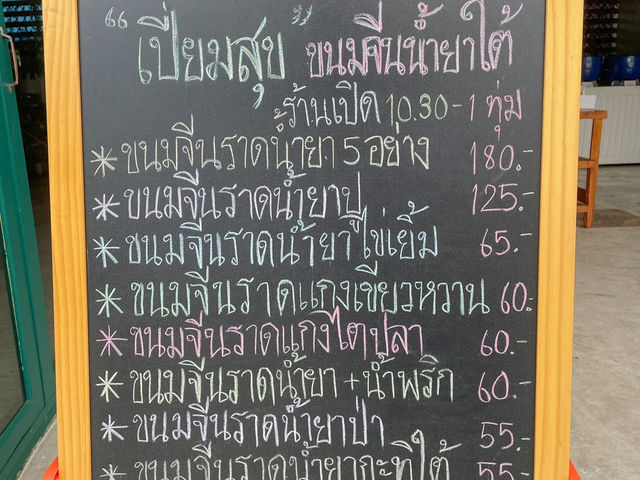 “เปี่ยมสุข” ขนมจีนน้ำยาใต้
ร้านเปิด 10.30-1 ทุ่ม
* ขนมจีนราดน้ำยา 5 อย่าง 180.-
* ขนมจีนราดน้ำยาปู 125.-
* ขนมจีนราดน้ำยาไข่เยิ้ม 65.-
* ขนมจีนราดแกงเขียวหวาน 60.-
* ขนมจีนราดแกงไตปลา 60.-
* ขนมจีนราดน้ำยา+น้ำพริก 60.-
* ขนมจีนราดน้ำยาป่า 55.-
* ขนมจีนราดน้ำยากะทิใต้ 55.-